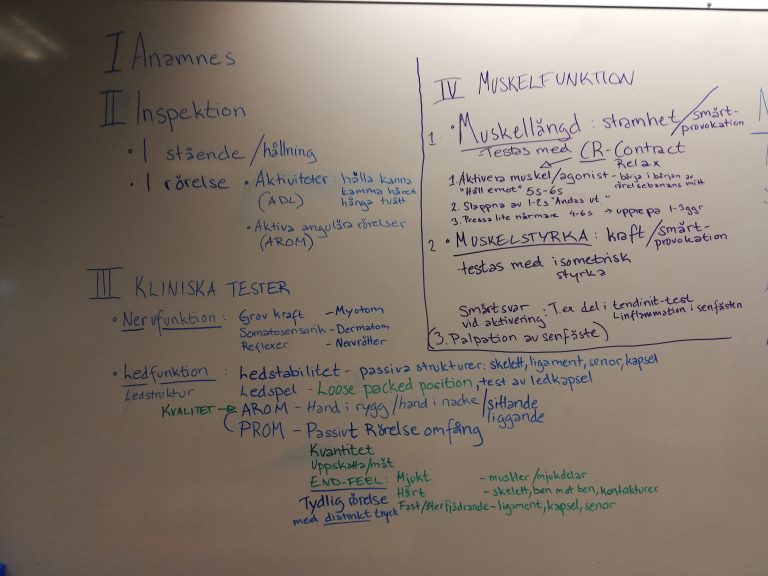 I Anamnes
II Inspektion
• I stående/hållning
• I rörelse • Aktiviteter: hålla kanna
(ADL) kamma håret
hänga tvätt
• Aktiva angulära rörelser
(AROM)
III KLINISKA TESTER
• Nervfunktion: Grov kraft - Myotom
Somatosensorik - Dermatom
Reflexer - Nervrötter
• Ledfunktion: Ledstabilitet - passiva strukturer: skelett, ligament, senor, kapsel
Ledstruktur Ledspel - Loose packed position, test av ledkapsel
KVALITET → AROM - Hand i rygg/hand i nacke/sittande
liggande
PROM - Passivt Rörelse omfång
Kvantitet
Uppskatta/mät
END-FEEL: Mjukt - muskler/mjukdelar
Tydlig rörelse Hårt - skelett, ben mot ben, kontrakturer
med distinkt tryck Fast/återfjädrande - ligament, kapsel, senor
IV MUSKELFUNKTION
1. • Muskellängd: stramhet/smärt-
provokation
-Testas med CR-Contract
Relax
1. Aktivera muskel/agonist - börja i början av
"Håll emot" 5s-6s rörelsebanans mitt
2. Slappna av 1-2s "Andas ut"
3. Pressa lite närmare 4-6s → upprepa 1-3ggr
2 • MUSKELSTYRKA: kraft/smärt-
provokation
• testas med isometrisk
styrka
Smärtsvar
vid aktivering. T.ex del i tendinit-test
Linflammation i senfästen
(3. Palpation av senfäste)